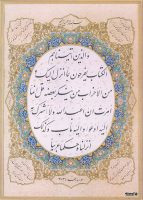 والذین آتیناهم
الکتاب یفرحون بما انزل الیک
من الاحزاب من ینکر بعضه قل انما
امرت ان اعبدالله ولا اشرک به
الیه ادعوا والیه مآب وکذلک
انزلناه حکما عربیا